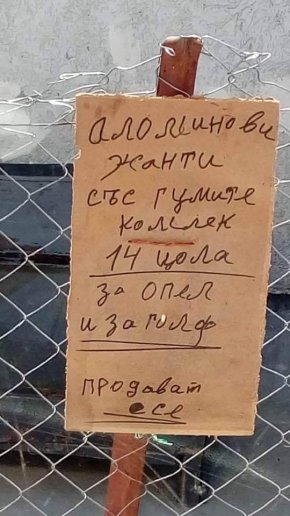 аломинови
жанти
със гумите
комлек
14 цола
за опел
и за голф
продават
се